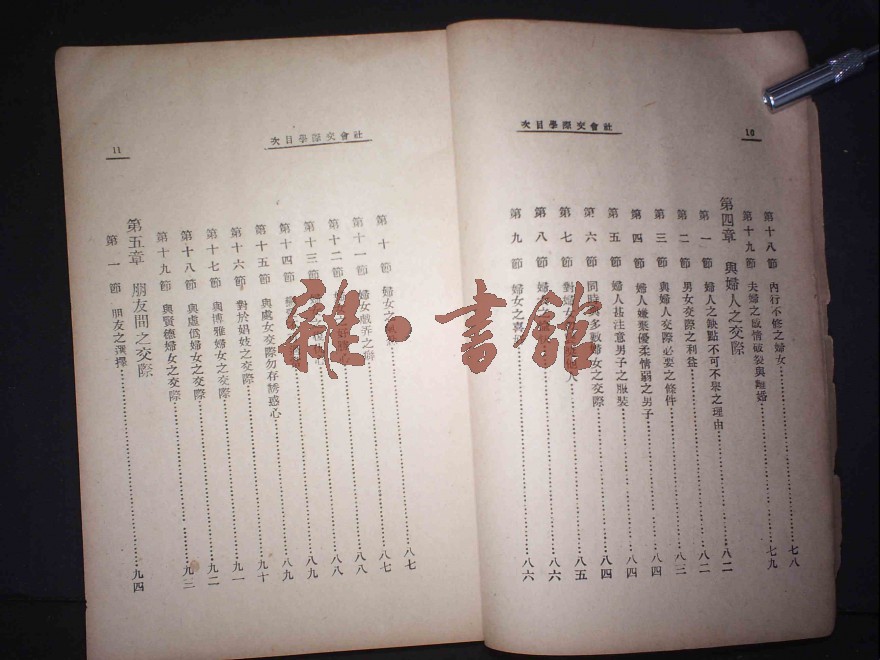 社會交際學目次
10
第十八節 內行不修之婦女 七八
第十九節 夫婦之感情破裂與離婚 七九
第四章 與婦人之交際 八二
第一節 婦人之缺點不可不舉之理由 八二
第二節 男女交際之利益 八三
第三節 與婦人交際必要之條件 八四
第四節 婦人嫌棄優柔情弱之男子 八四
第五節 婦人甚注意男子之服裝 八四
第六節 同時與多數婦女之交際 八五
第七節 對婦女 人 八六
第八節 婦 之 八六
第九節 婦女之喜
社會交際學目次
11
第十節 婦女之 八七
第十一節 婦女戲弄之 八七
第十二節 好 心 八八
第十三節 心 八八
第十四節 八九
第十五節 與處女交際勿存誘惑心 八九
第十六節 對於娼妓之交際 九十
第十七節 與博雅婦女之交際 九一
第十八節 與虛僞婦女之交際 九二
第十九節 與賢德婦女之交際 九三
第五章 朋友間之交際 九四
第一節 朋友之選擇
雜·書館